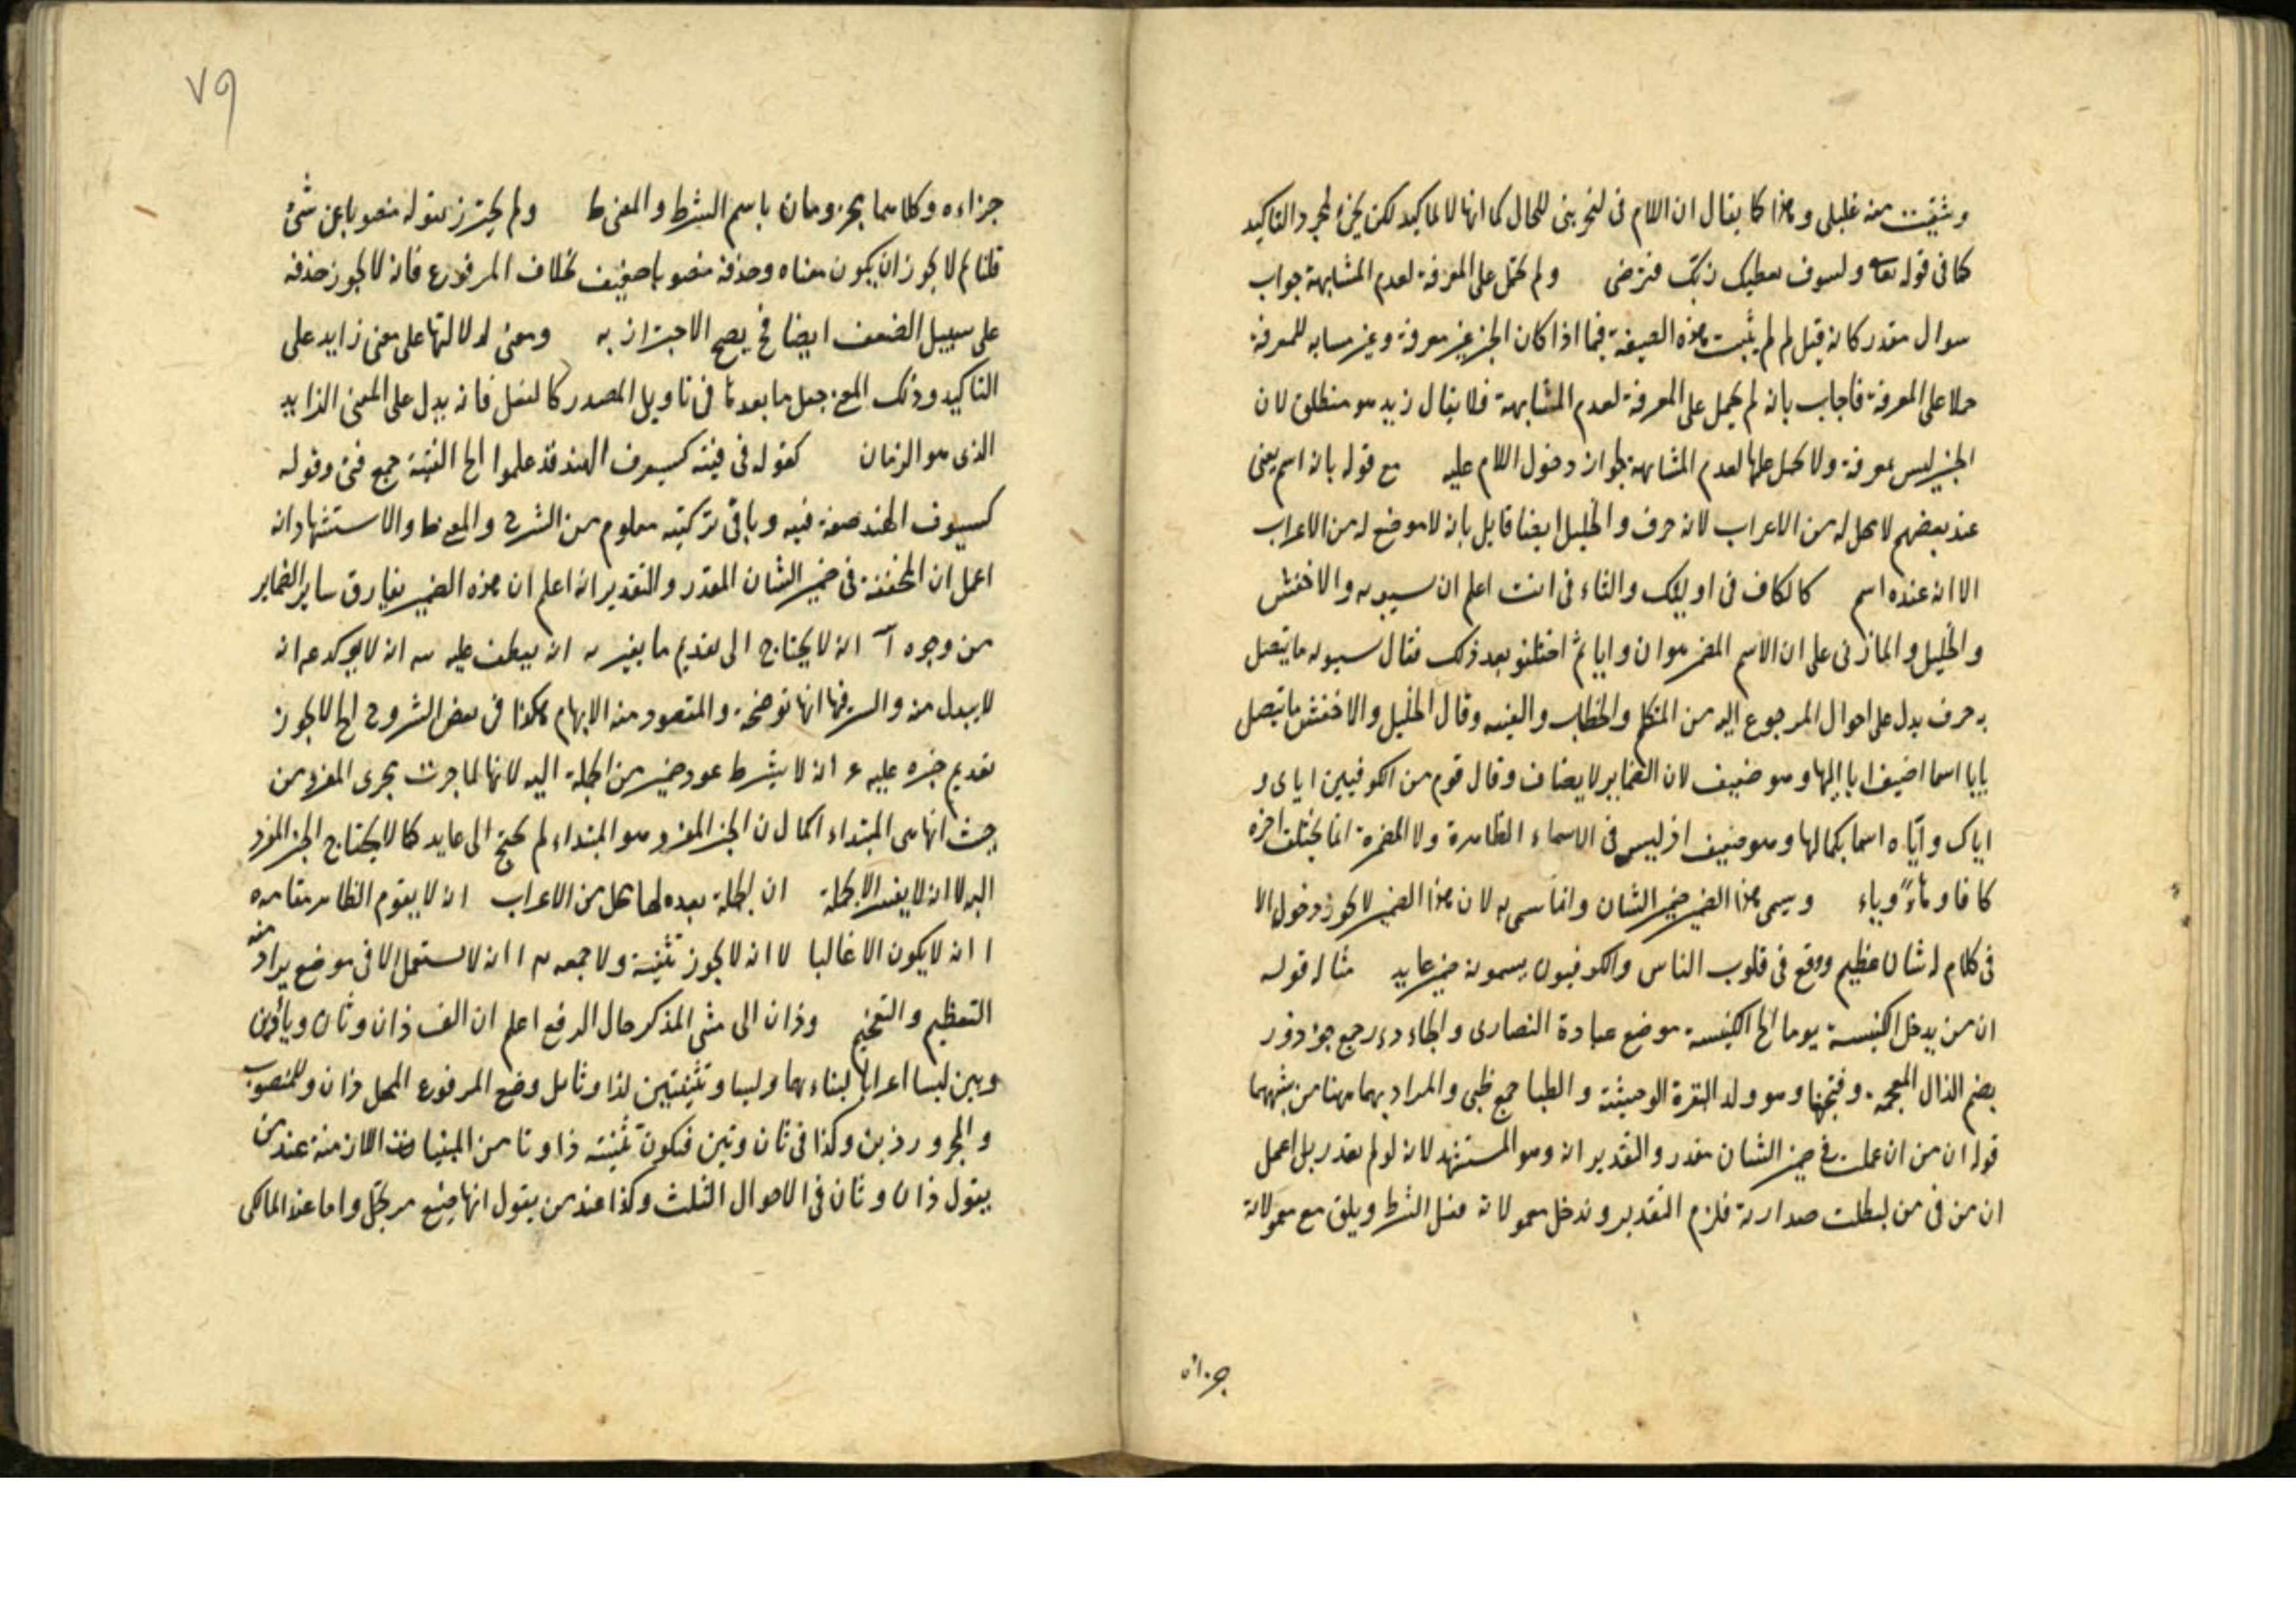 وشفيت منه غليلى وهذا كما يقال ان اللام فى لنحزبنى للحال كما انها للتاكيد لكن يجئ لمجرد التاكيد
كما فى قوله تعه ولسوف يعطيك ربك فترضى ولم تحمل على المعرفة لعدم المشابهة جواب
سوال مقدر كانه قيل لم لم يثبت هذه الصيغة فيما اذا كان الخبر غير معرفة وغير مشابه للمعرفة
حملا على المعرفة فاجاب بانه لم يحمل على المعرفة لعدم المشابهة فلا يقال زيد هو منطلق لان
الخبر ليس معرفة ولا يحمل عليها لعدم المشابهة لجواز دخول اللام عليه مع قوله بانه اسم يعنى
عند بعضهم لا محل له من الاعراب لانه حرف والخليل ايضا قايل بانه لا موضع له من الاعراب
الا انه عنده اسم كالكاف فى اوليك والتاء فى انت اعلم ان سيبويه والاخفش
والخليل والمازنى على ان الاسم المضمر هو ان وايا ثم اختلفوا بعد ذلك فقال سيبويه ما يتصل
به حرف يدل على احوال المرجوع اليه من المتكلم والخطاب والغيبه وقال الخليل والاخفش ما يتصل
بايا اسما اضيف ايا اليها وهو ضعيف لان الضماير لا يضاف وقال قوم من الكوفيين اياى و
اياك واياه اسما بكمالها وهو ضعيف اذ ليس فى الاسماء الظاهرة ولا المضمرة انما يختلف اخره
كافا وهاءً وياء ويسمى هذا الضمير ضمير الشان وانما سمى به لان هذا الضمير لا يجوز دخوله الا
فى كلام له شان عظيم ووقع فى قلوب الناس والكوفيون يسمونه ضمير عايد مثاله قوله
ان من يدخل الكنيسة يوما الخ الكنيسة موضع عبادة النصارى والجاءدر جمع جوذر
بضم الذال المعجمة وفتحها وهو ولد البقرة الوحيشة والظبا جمع ظبى والمراد بهما ههنا من يشبههما
قوله ان من ان عملت فى ضمير الشان مقدر والتقدير انه وهو المستشهد لانه لو لم يقدر بل اعمل
ان من فى من لبطلت صدارته فلزم التقدير ويدخل معمولاته فعل الشرط ويلق مع معمولاته
جزاه
٧٩
جزاءه وكلاهما مجزومان باسم الشرط والمعنى ط ولم يحترز بقوله منصوبا عن شئ
قلنا لم لا يجوز ان يكون معناه وحذفه منصوبا ضعيف بخلاف المرفوع فانه لا يجوز حذفه
على سبيل الضعف ايضا فح يصح الاحتراز به ومعنى لدلالتها على معنى زايد على
التاكيد وذلك المعنى جعل ما بعدها فى تاويل المصدر كالفعل فانه يدل على المعنى الزايد
الذى هو الزمان كقوله فى فتية كسيوف الهند قد علموا الخ الفتية جمع فتى وقوله
كسيوف الهند صفة فتيه وباقى تركيبه معلوم من الشرح والمعنى ط والاستشهاد انه
اعمل ان المخففة فى ضمير الشان المقدر والتقدير انه اعلم ان هذه الضمير يفارق ساير الضماير
من وجوه آ انه لا يحتاج الى تقديم ما يفسره انه يعطف عليه انه لا يوكد انه
لا يبدل منه والسر فيها انها توضحه والمقصود منه الابهام هكذا فى بعض الشروح الخ لا يجوز
تقديم خبره عليه انه لا يشرط عود ضمير من الجملة اليه لانها لما جرت مجرى المفرد من
حيث انها هى المبتداء كما ان الخبر المفرد هو المبتداء لم يحتج الى عايد كما لا يحتاج الخبر المفرد
اليه انه لا يفسر الا بجملة ان الجملة بعده لها محل من الاعراب انه لا يقوم الظاهر مقامه
ا انه لا يكون الا غالبا انه لا يجوز تثنيته ولا جمعه انه لا يستعمل الا فى موضع يراد منه
التعظيم والتفخيم وذان الى مثنى المذكر حال الرفع اعلم ان الف ذان وتان وياء ذين
وتين ليسا اعرابا لبناءهما وليسا وتثنيتين لذا وتا بل وضع المرفوع المحل ذان وللمنصوب
والمجرور ذين وكذا فى تان وتين فتكون تثنيته ذا وتا من المبنيات اللازمة عند من
يقول ذان وتان فى الاحوال الثلث وكذا عند من يقول انها صيغ مرتجل واما عند المالكى